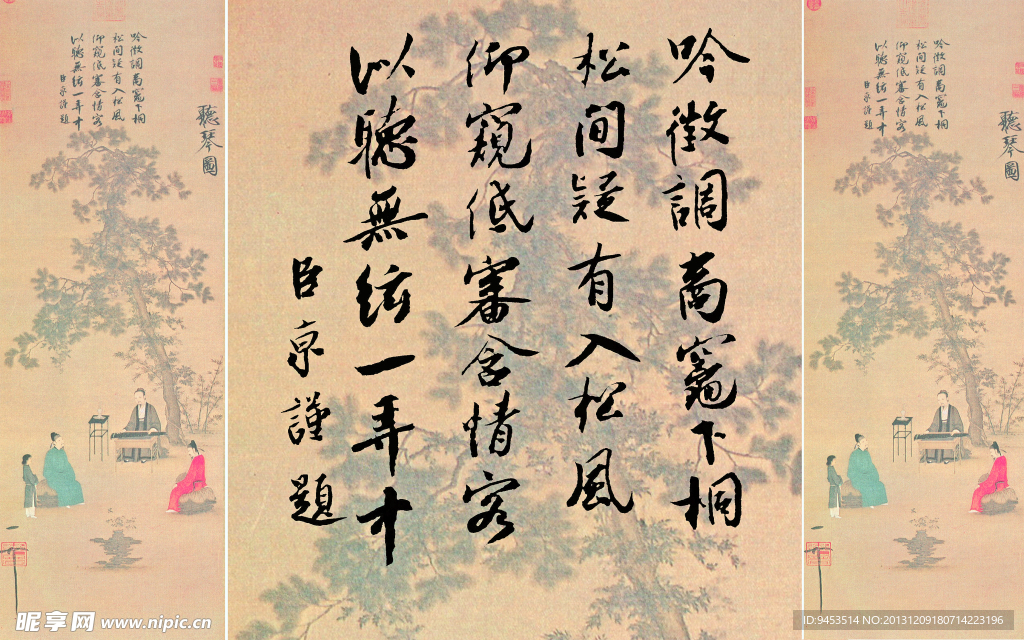 吟徵調商竈下桐
松間疑有入松風
仰窺低審含情客
以聽無絃一弄中
臣京謹題
聽琴圖
吟徵調商竈下桐
松間疑有入松風
仰窺低審含情客
以聽無絃一弄中
臣京謹題
聽琴圖
吟徵調商竈下桐
松間疑有入松風
仰窺低審含情客
以聽無絃一弄中
臣京謹題
昵享网 www.nipic.cn
ID:9453514 NO:20131209180714223196